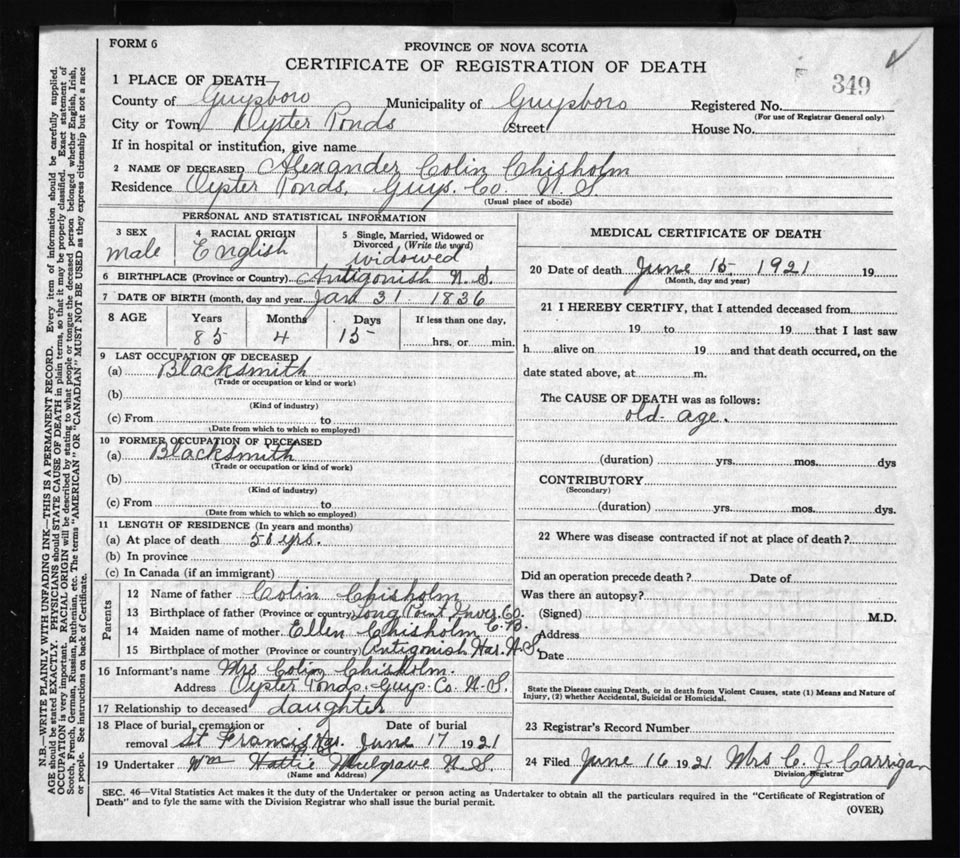 FORM 6
PROVINCE OF NOVA SCOTIA
CERTIFICATE OF REGISTRATION OF DEATH
349
1 PLACE OF DEATH
County of Guysboro Municipality of Guysboro Registered No.
(For use of Registrar General only)
City or Town Oyster Ponds Street House No.
If in hospital or institution, give name
2 NAME OF DECEASED Alexander Colin Chisholm
Residence Oyster Ponds, Guys. Co. N. S.
(Usual place of abode)
PERSONAL AND STATISTICAL INFORMATION
3 SEX male
4 RACIAL ORIGIN English
5 Single, Married, Widowed or Divorced (Write the word) widowed
6 BIRTHPLACE (Province or Country) Antigonish N. S.
7 DATE OF BIRTH (month, day and year Jan 31 1836
8 AGE Years Months Days If less than one day,
85 4 15 hrs. or min.
9 LAST OCCUPATION OF DECEASED
(a) Blacksmith
(Trade or occupation or kind or work)
(b)
(Kind of industry)
(c) From to
(Date from which to which so employed)
10 FORMER OCCUPATION OF DECEASED
(a) Blacksmith
(Trade or occupation or kind of work)
(b)
(Kind of industry)
(c) From to
(Date from which to which so employed)
11 LENGTH OF RESIDENCE (In years and months)
(a) At place of death yrs.
(b) In province
(c) In Canada (if an immigrant)
Parents
12 Name of father Colin Chisholm
13 Birthplace of father (Province or country) Long Point Inver. Co. C. B.
14 Maiden name of mother Ellen Chisholm
15 Birthplace of mother (Province or country) Antigonish Har. N. S.
16 Informant's name Mrs Colin Chisholm.
Address Oyster Ponds. Guys. Co N. S.
17 Relationship to deceased daughter
18 Place of burial, cremation or removal St Francis Har. Date of burial June 17 1921
19 Undertaker Wm Hattie Mulgrave N. S
(Name and Address)
MEDICAL CERTIFICATE OF DEATH
20 Date of death June 15 1921 19
(Month, day and year)
21 I HEREBY CERTIFY, that I attended deceased from
19 to 19 that I last saw
h alive on 19 and that death occurred, on the
date stated above, at m.
The CAUSE OF DEATH was as follows:
old age.
(duration) yrs. mos. dys
CONTRIBUTORY
(Secondary)
(duration) yrs. mos. dys.
22 Where was disease contracted if not at place of death?
Did an operation precede death? Date of
Was there an autopsy?
(Signed) M.D.
Address
Date
State the Disease causing Death, or in death from Violent Causes, state (1) Means and Nature of
Injury, (2) whether Accidental, Suicidal or Homicidal.
23 Registrar's Record Number
24 Filed June 16 1921 Mrs C. J. Carrigan
Division Registrar
SEC. 46—Vital Statistics Act makes it the duty of the Undertaker or person acting as Undertaker to obtain all the particulars required in the "Certificate of Registration of
Death" and to fyle the same with the Division Registrar who shall issue the burial permit.
(OVER)
N.B.—WRITE PLAINLY WITH UNFADING INK—THIS IS A PERMANENT RECORD. Every item of information should be carefully supplied.
AGE should be stated EXACTLY. PHYSICIANS should STATE CAUSE OF DEATH in plain terms, so that it may be properly classified. Exact statement of
OCCUPATION is very important. RACIAL ORIGIN will be described by stating to what people or tongue the deceased person belonged whether English, Irish,
Scotch, French, German, Russian, Ruthenian, etc. The terms "AMERICAN" OR "CANADIAN" MUST NOT BE USED as they express citizenship but not a race
or people. See instructions on back of Certificate.